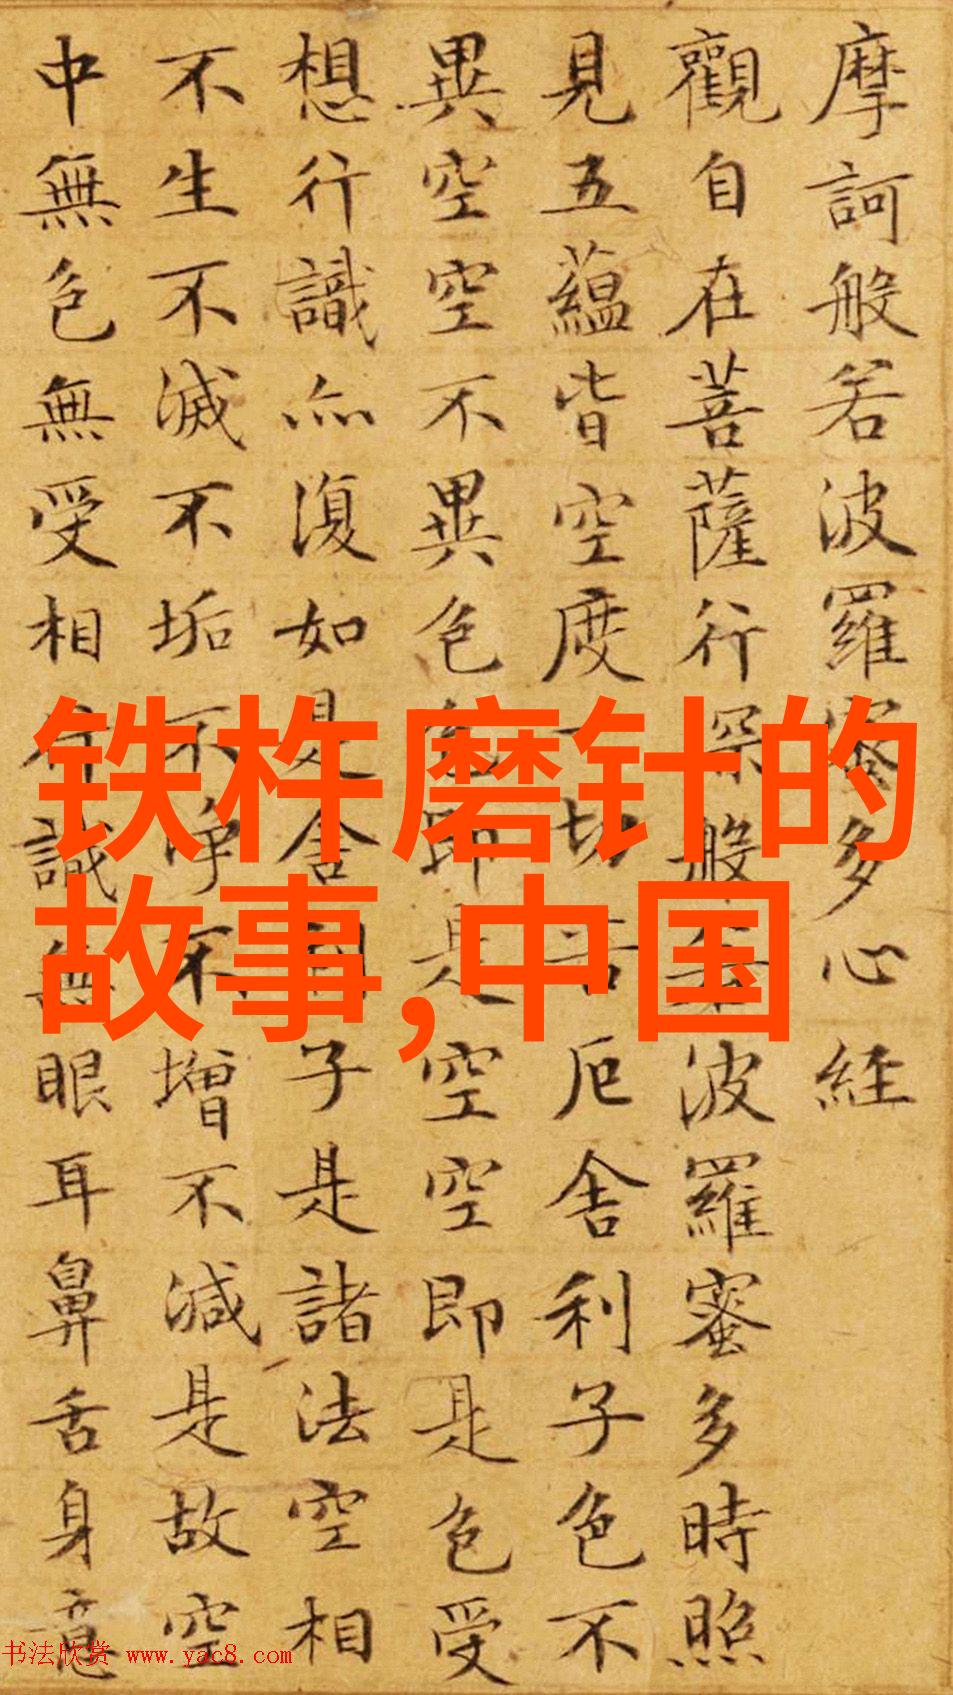 摩訶般若波羅蜜多心経
觀自在菩薩行深般若波羅蜜多時照
見五蘊皆空度一切苦厄舍利子色不
異空空不異色色即是空空即是色受
想行識亦復如是舍利子是諸法空相
不生不滅不垢不净不增不減是故空
中無色無受相行識無眼耳鼻舌身意
铁杵磨针的
故事,中国
书法欣赏 www.yac8.com